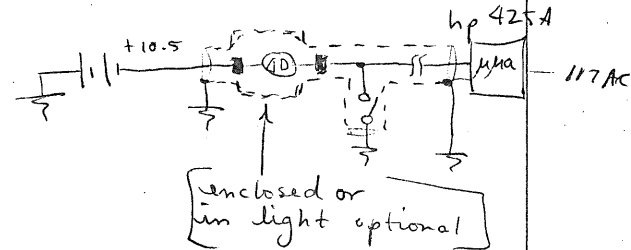 hp 425A
+10.5
μμa
117 AC
enclosed or
in light optional